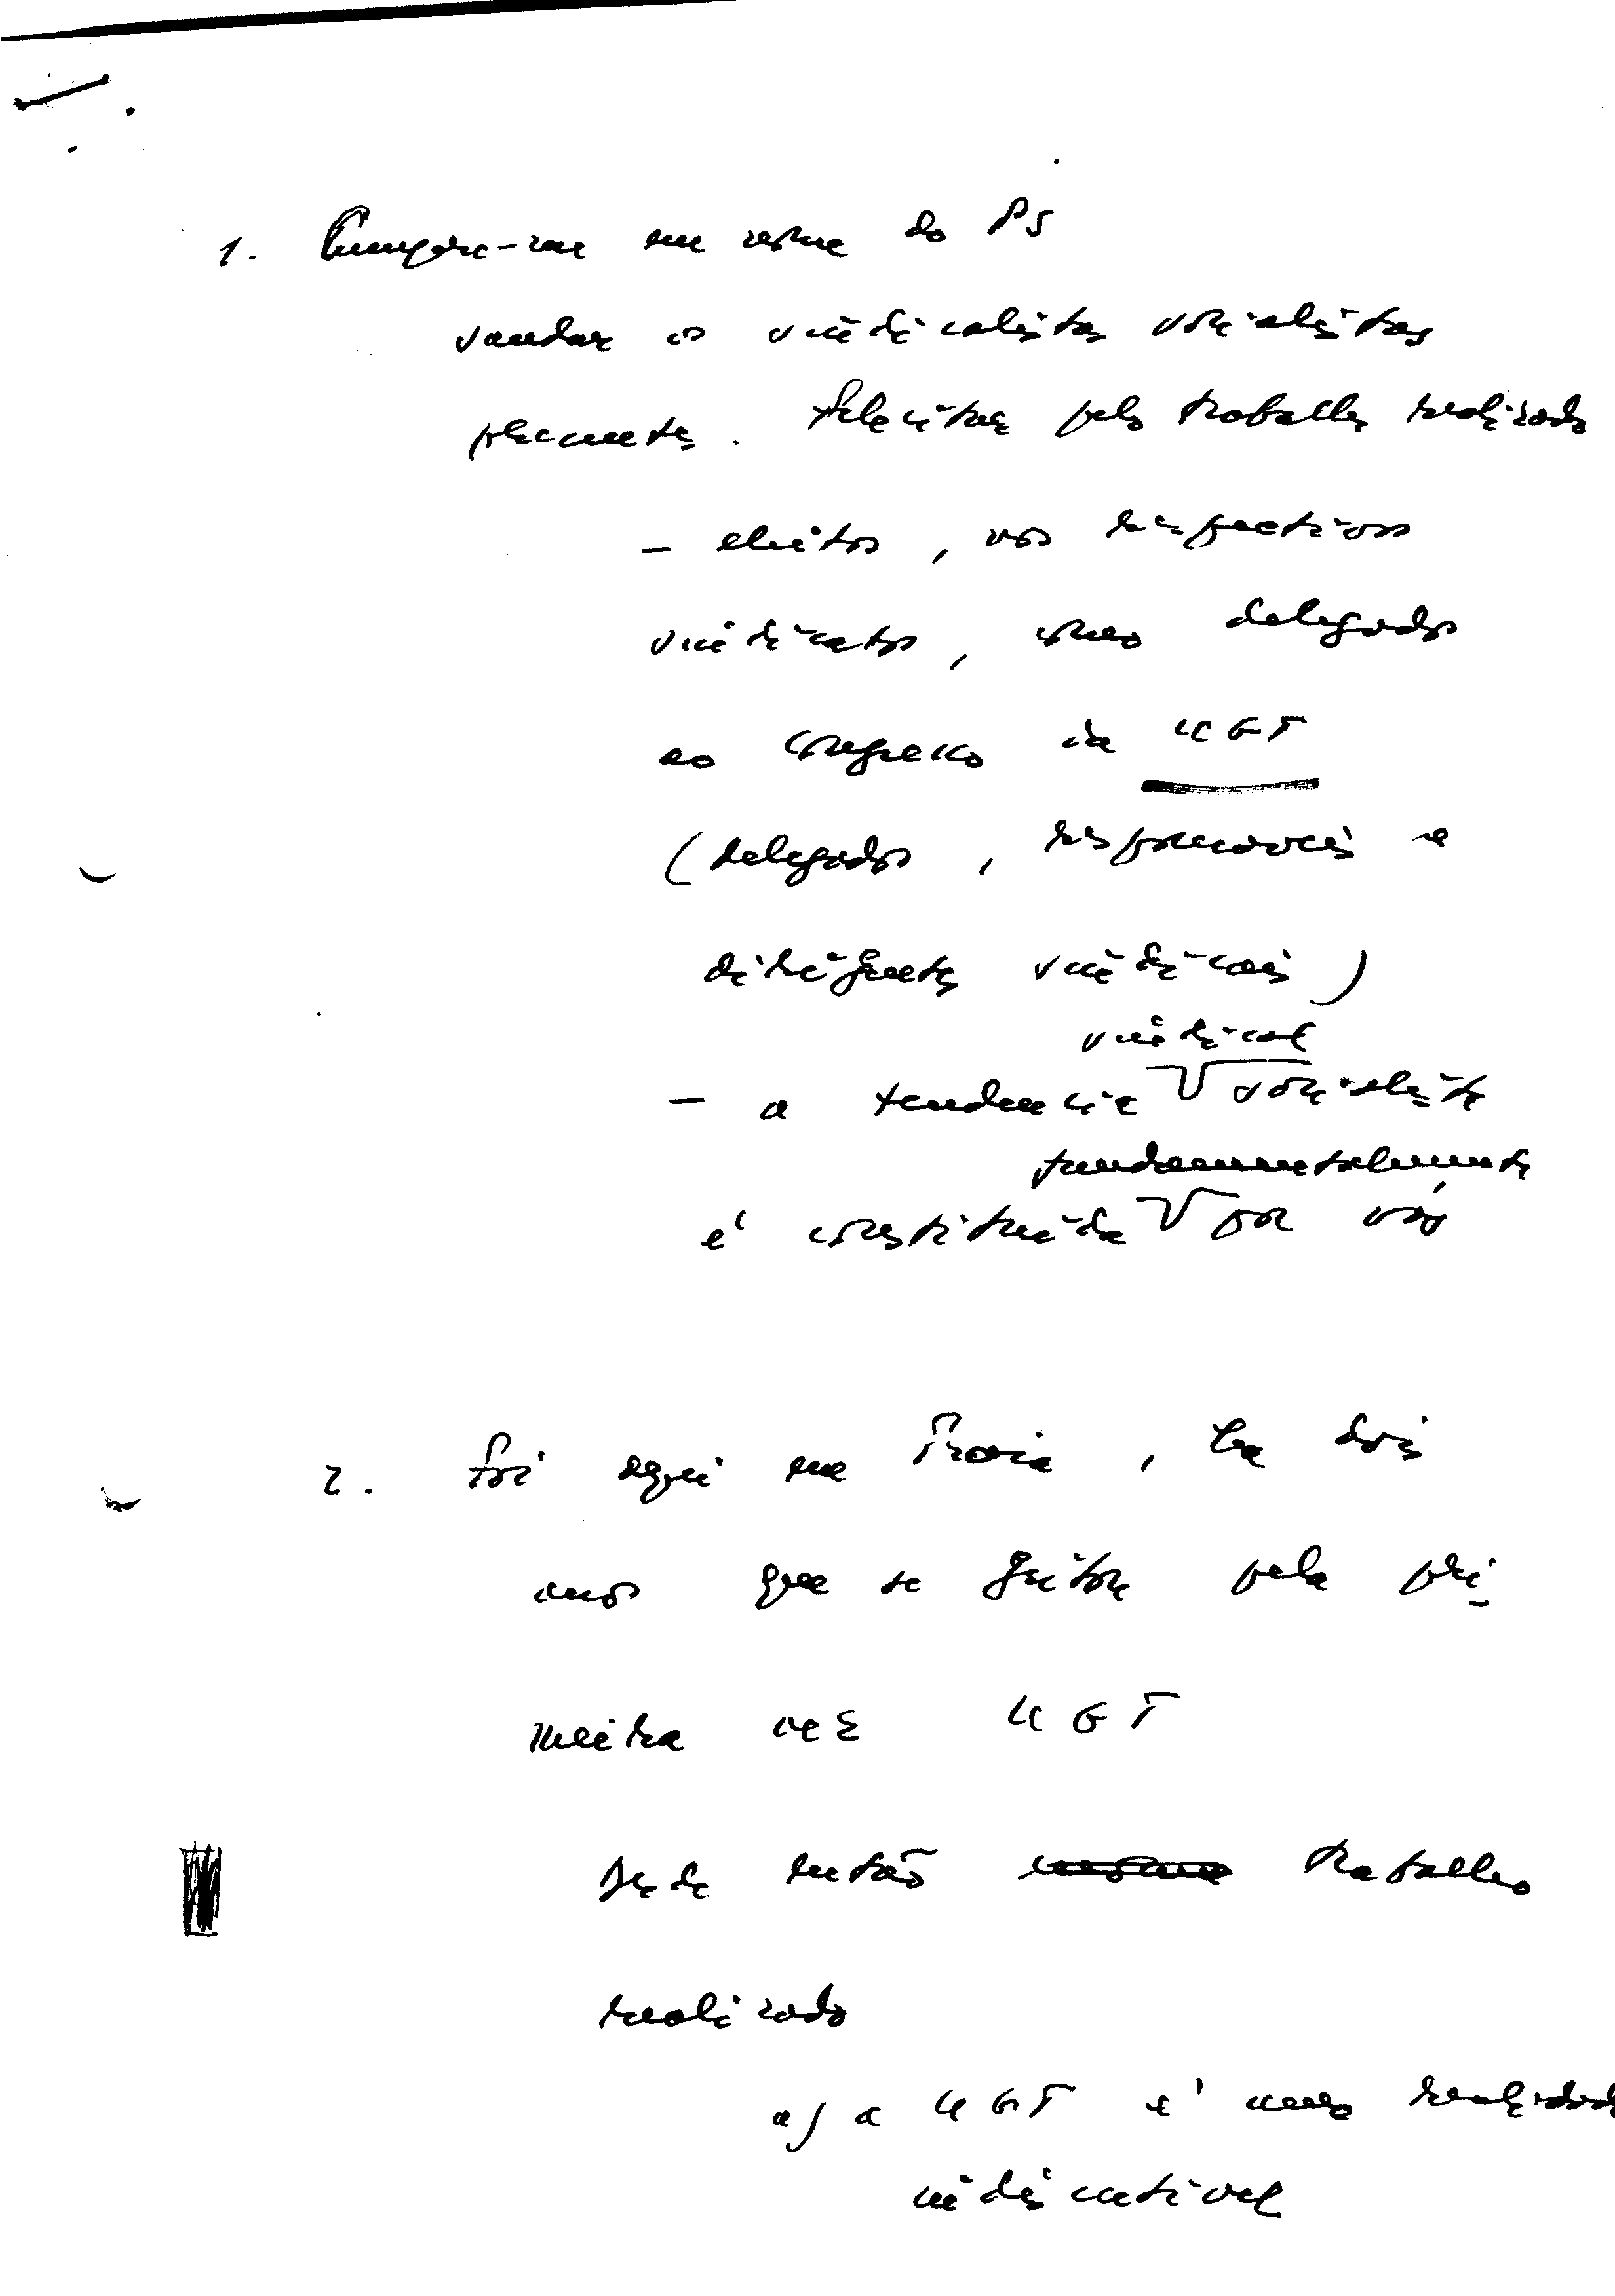 1. Cumpre-me em nome do PS
saudar os sindicalistas socialistas
presentes. Felicitar pelo trabalho realizado
- eleitos, nos respectivos
sindicatos, como delegados
ao congresso da UGT
(delegados, responsáveis e
dirigentes sindicais)
sindical
- a tendencia socialista
fundamentalmente
é constituída por vós
2. Foi aqui na , há dois
anos que se gritou pela pri-
meira vez UGT
Desde então trabalho
realizado
a) a UGT é uma realidade
indiscutivel